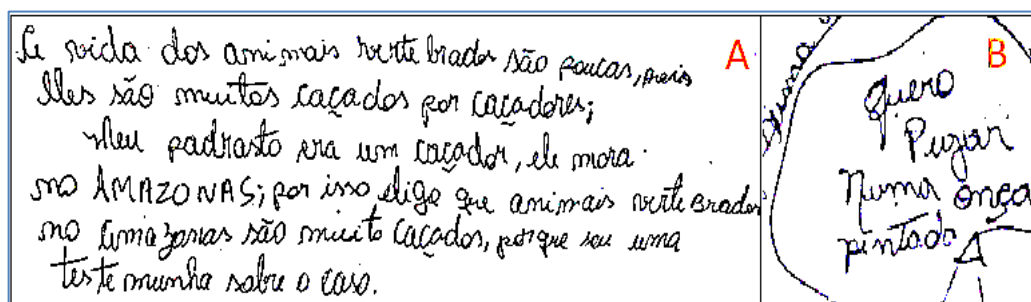 A vida dos animais vertebrados são poucas, pois
Eles são muitos caçados por caçadores;
Meu padrasto era um caçador, ele mora
no AMAZONAS; por isso, digo que animais vertebrados
no Amazonas são muito caçados, porque sou uma
testemunha sobre o caso.
A
B
Quero
Pugar
Numa onça
pintada